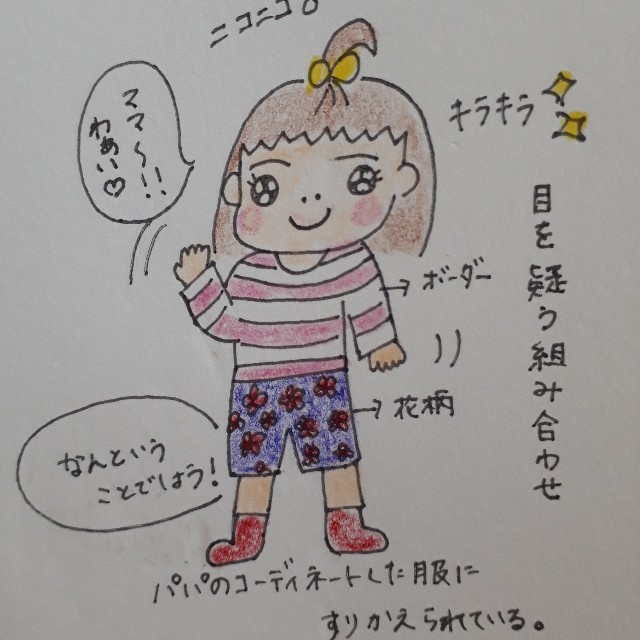 ニコニコ。
キラキラ
ママ〜!!
わぁい♡
目を疑う組み合わせ
ボーダー
花柄
なんという
ことでしょう!
パパのコーディネートした服に
すりかえられている。